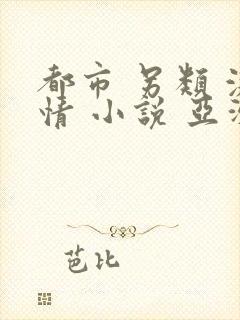 都市 另類 
情 小說 亞
芭比